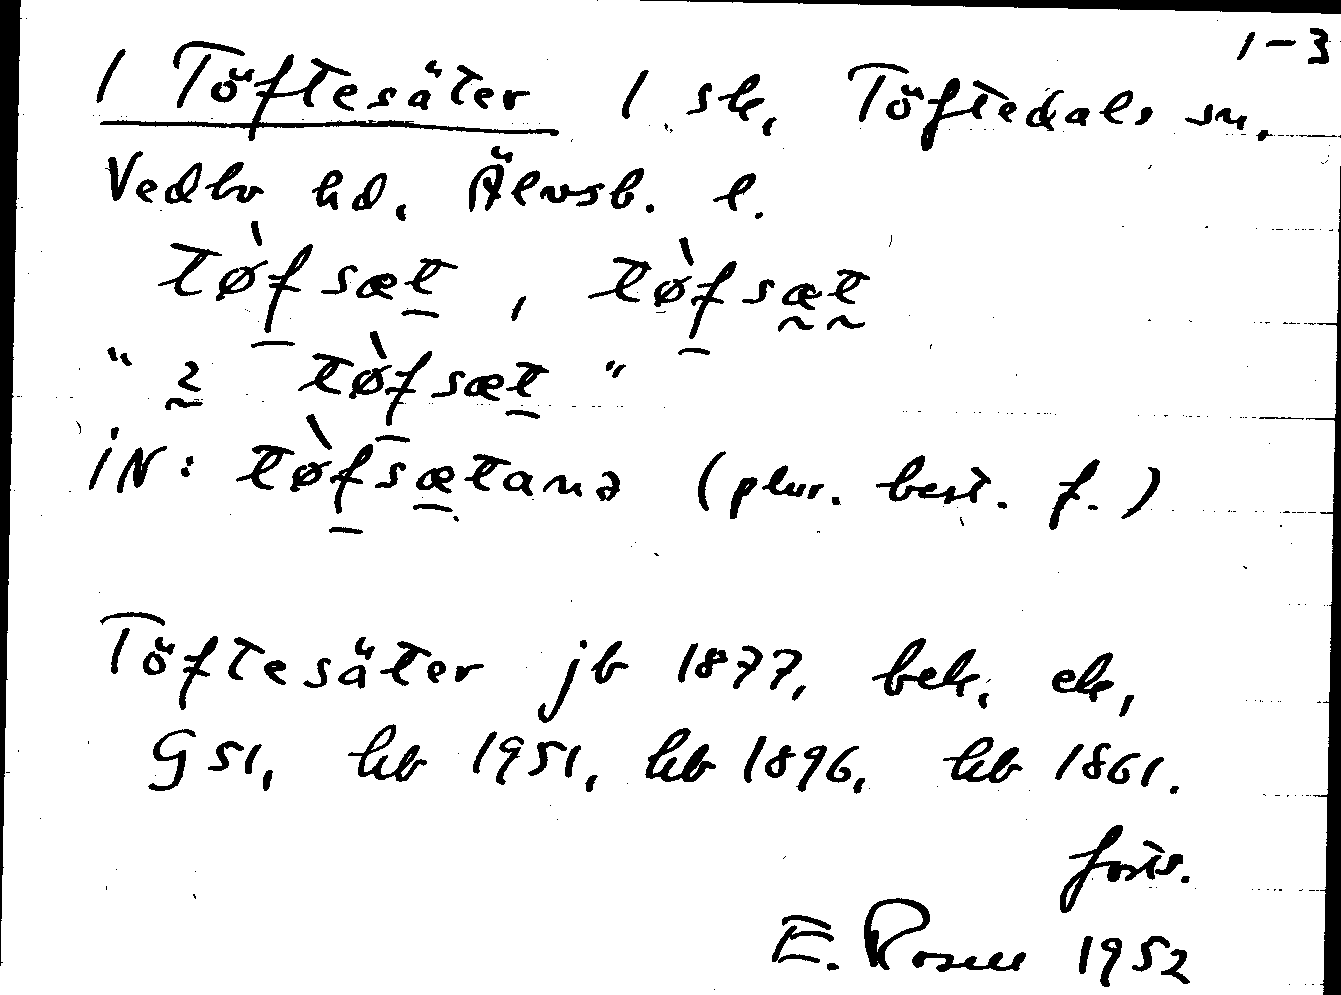 1-3
/ Töftesäter / sk, Töftedals sn.
Vedbo hd. Älvsb. l.
tø̀fsæt, tø̀fsæt
" 2 tø̀fsæt "
iN: tø̀fsætanə (plur. best. f.)
Töftesäter jb 1877, bek. ek,
G 51, kb 1951, kb 1896, kb 1861.
forts.
E. Rosell 1952